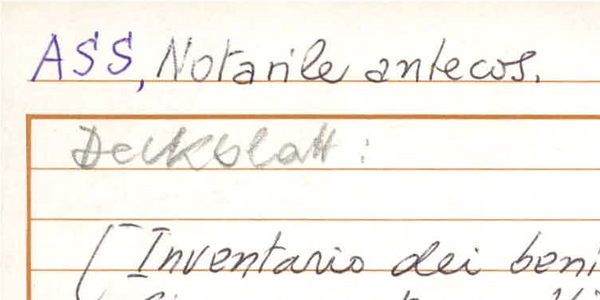 ASS, Notarile antecos.
Deckblatt:
[Inventario dei beni